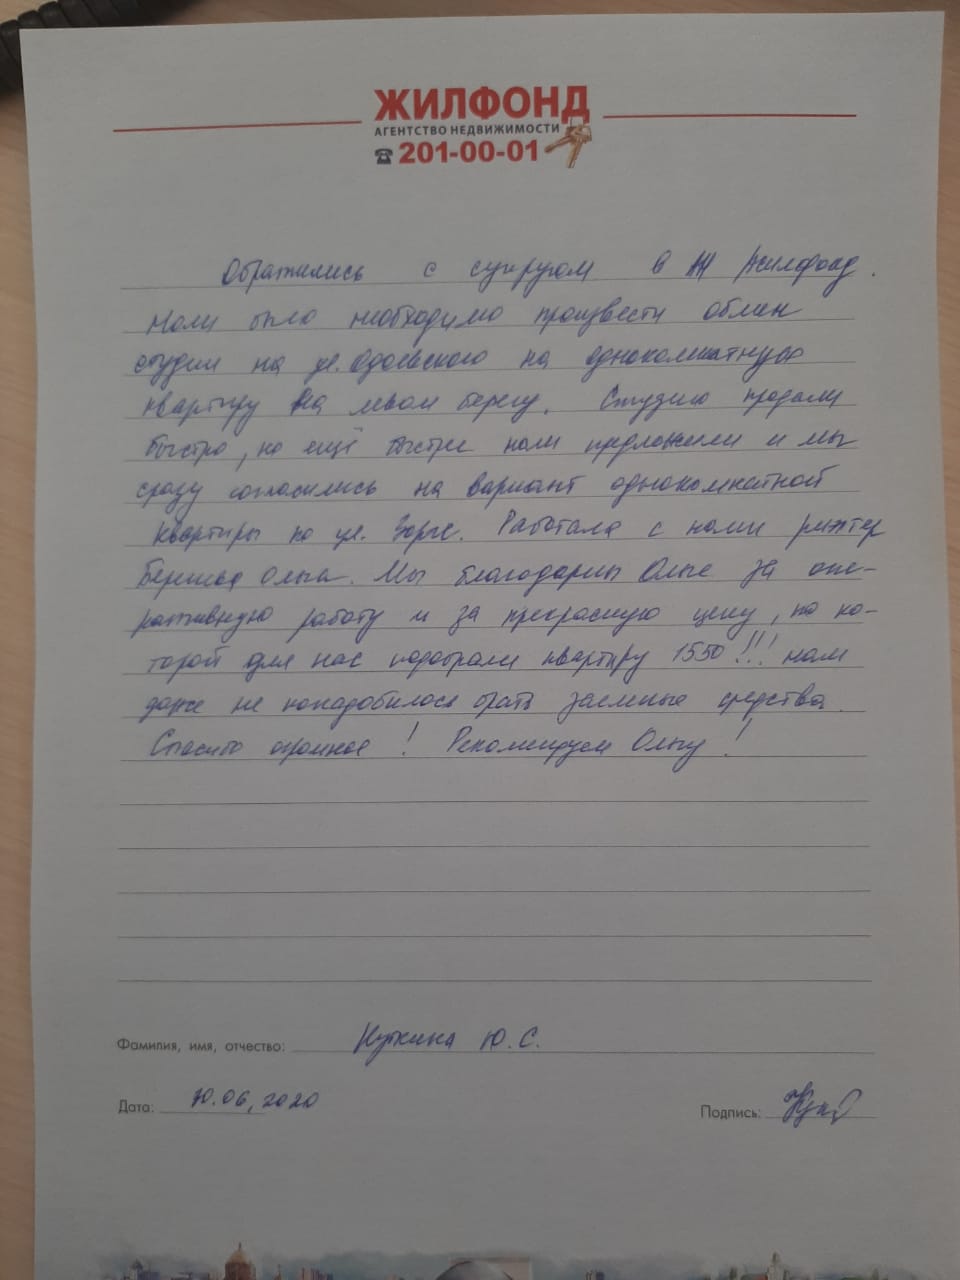 ЖИЛФОНД
АГЕНТСТВО НЕДВИЖИМОСТИ
201-00-01
Обратились с супругом в Жилфонд.
Нам было необходимо произвести обмен
студии на ул. Одоевского на однокомнатную
квартиру на левом берегу. Студию продали
быстро, но ещё быстрее нам предложили и мы
сразу согласились на вариант однокомнатной
квартиры по ул. Зорге. Работала с нами риэлтер
Ольга. Мы благодарны Ольге за опе-
ративную работу и за прекрасную цену, по ко-
торой для нас подобрали квартиру 1550!!! нам
даже не понадобилось брать заемные средства.
Спасибо огромное! Рекомендуем Ольгу!
Фамилия, имя, отчество: Ю.С.
Дата: 10.06,2020
Подпись: